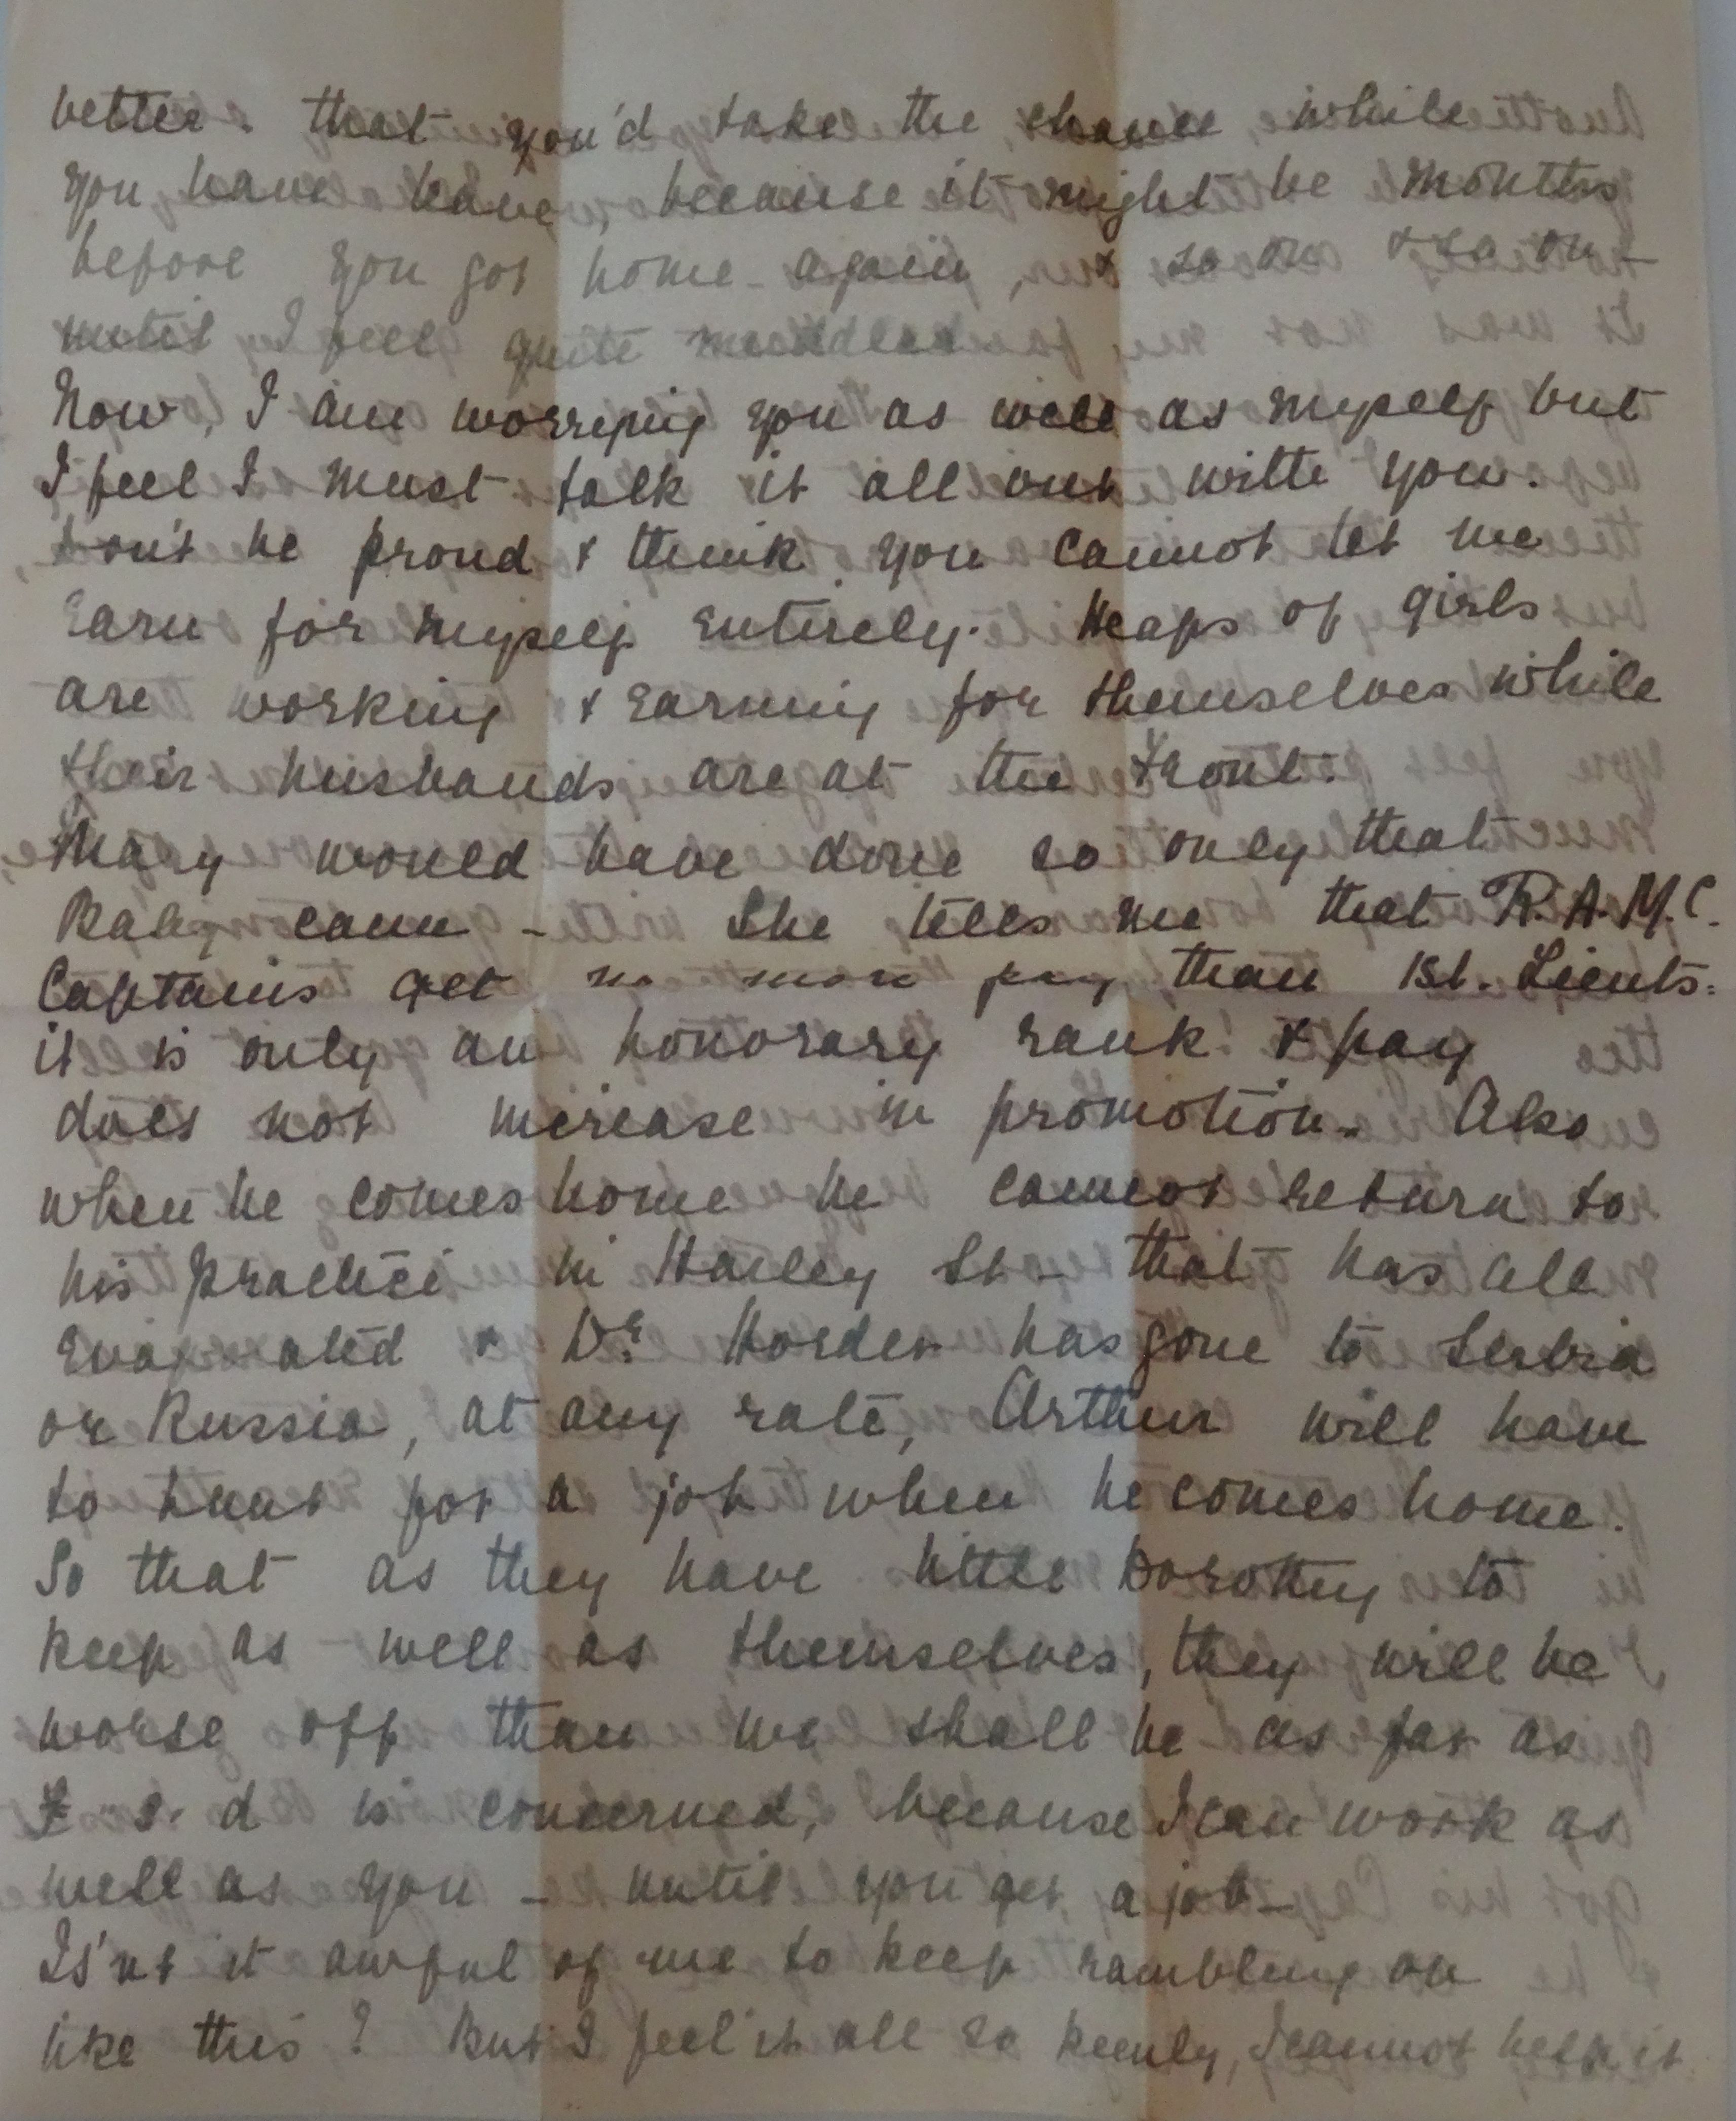 better that you'd take the chance while
you have leave, because it might be months
before you got home again, & so on & so on -
until I feel quite muddled
Now, I am worrying you as well as myself but
I feel I must talk it all out with you.
Don't be proud & think you cannot let me
earn for myself entirely. Heaps of girls
are working & earning for themselves while
their husbands are at the Front.
Mary would have done so only that
Baby came - She tells me that R.A.M.C.
Captains get no more pay than 1st. Lieuts.
it is only an honorary rank! & pay
does not increase in promotion. Also
when he comes home he cannot return to
his practice in Harley St - that has all
evaporated & Dr. Horder has gone to Serbia
or Russia, at any rate, Arthur will have
to hunt for a job when he comes home.
So that as they have little Dorothy to
keep as well as themselves, they will be
worse off than we shall be as far as
£ s. d is concerned, because I can work as
well as you - until you get a job -
Is'nt it awful of me to keep rambling on
like this? But I feel it all so keenly, I cannot help it